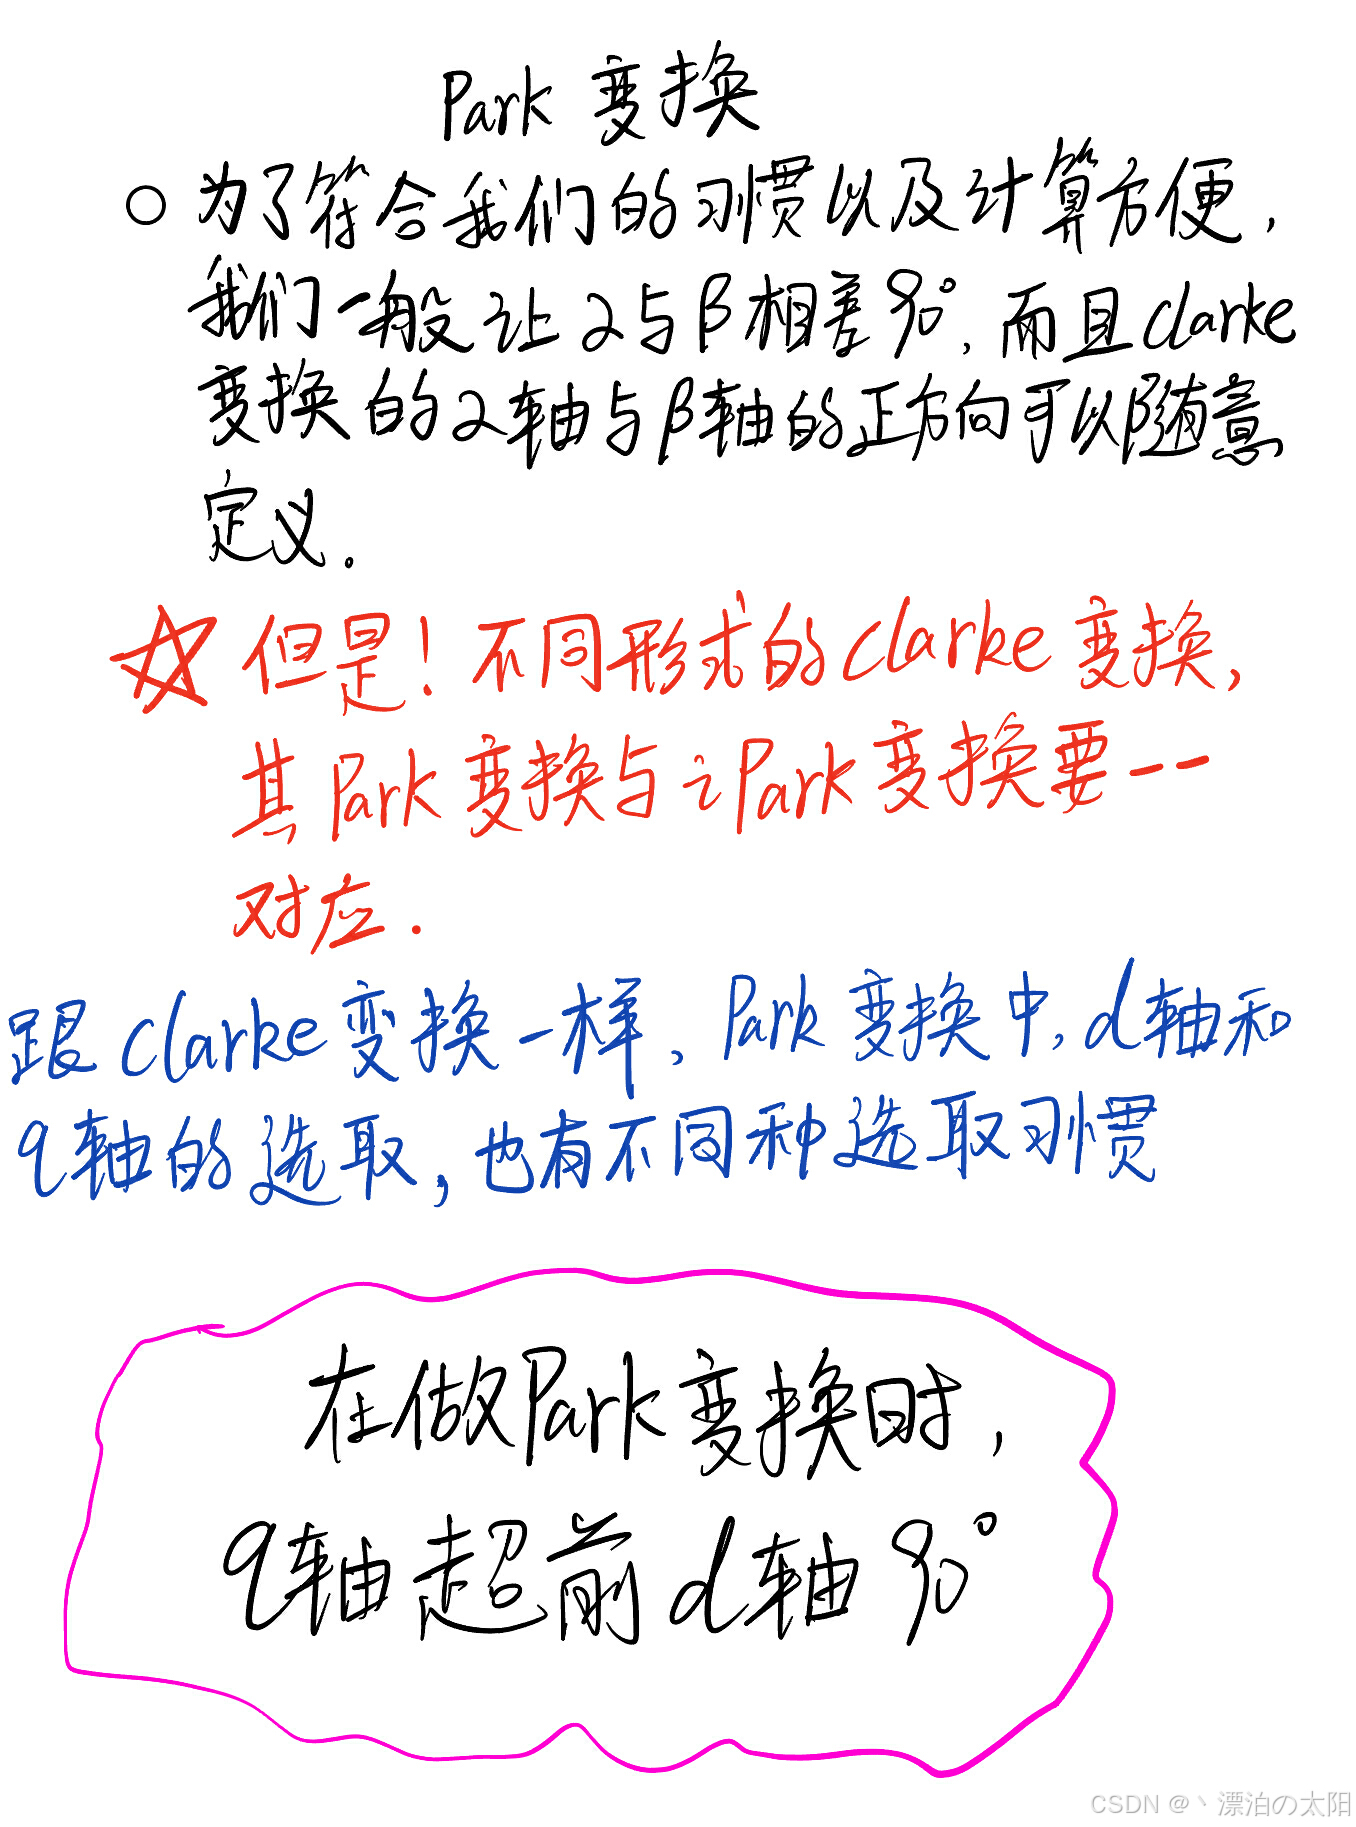 Park 变换
○ 为了符合我们的习惯以及计算方便,
我们一般让α与β相差90°,而且clarke
变换的α轴与β轴的正方向可以随意
定义.
☆ 但是!不同形式的clarke变换,
其Park变换与iPark变换要一一
对应.
跟clarke变换一样,Park变换中,d轴和
q轴的选取,也有不同种选取习惯
在做Park变换时,
q轴超前d轴90°
CSDN @丶漂泊の太阳